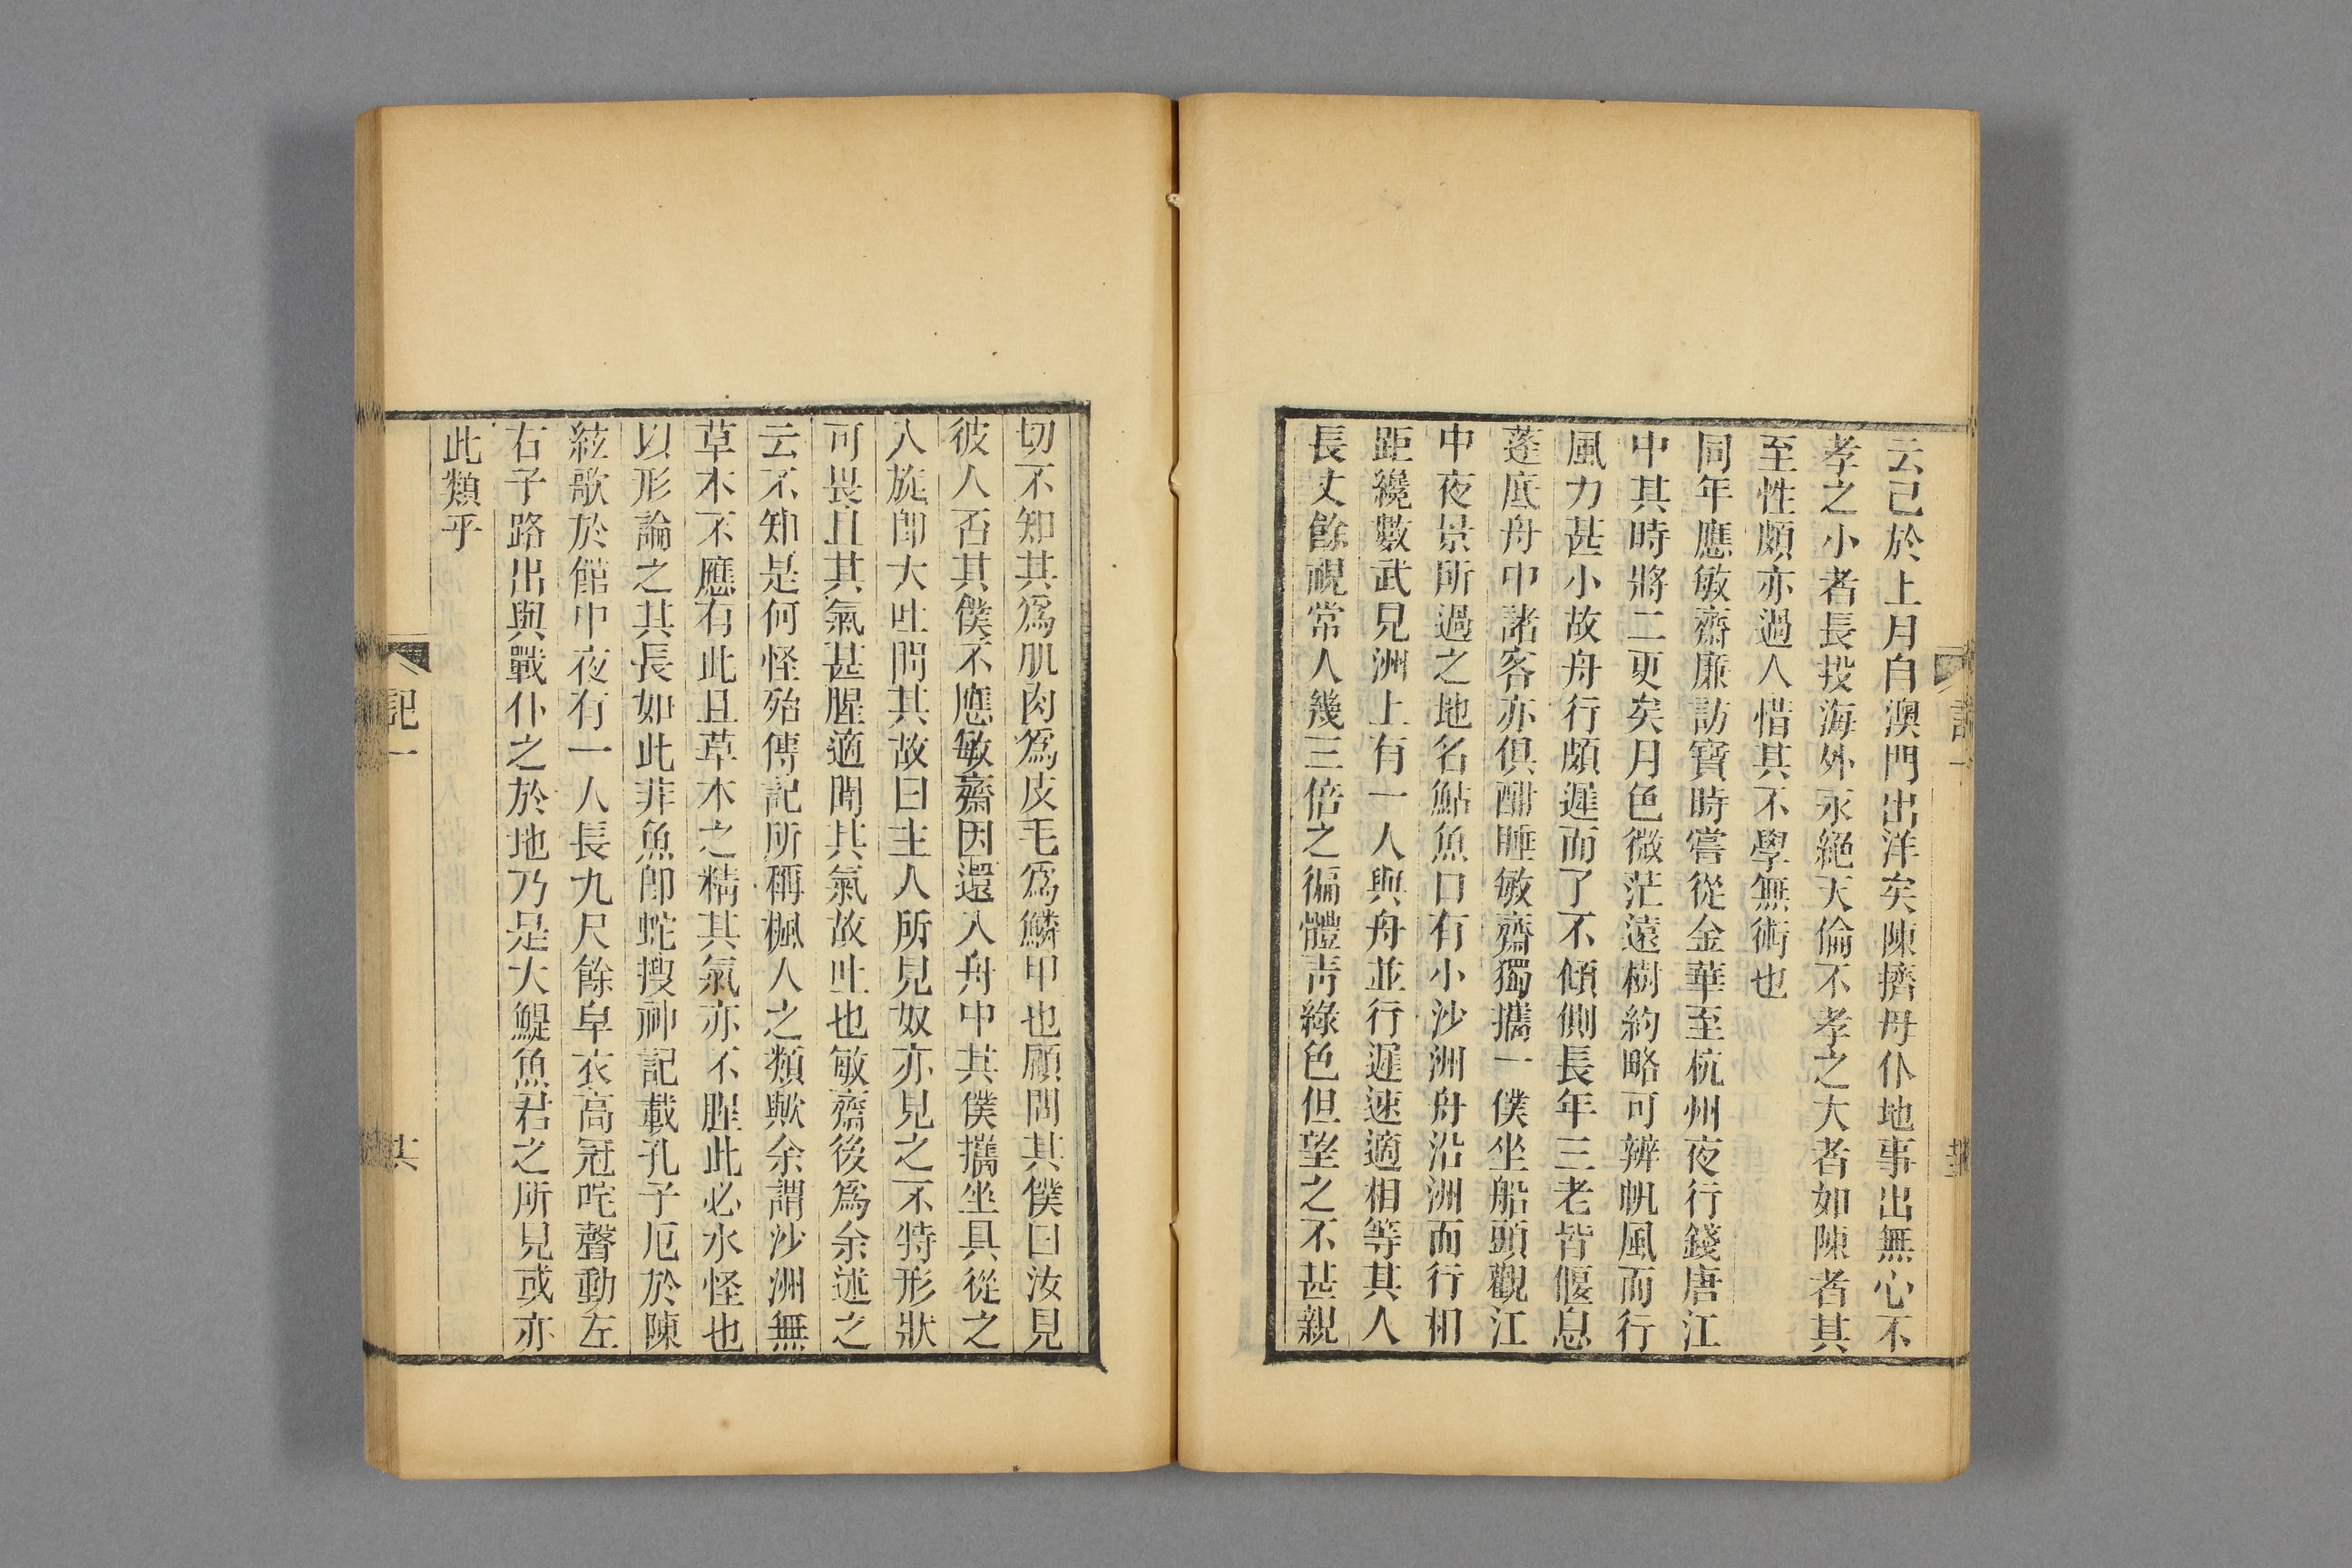 云已於上月自澳門出洋矣陳擠母仆地事出無心不
孝之小者長投海外永絕天倫不孝之大者如陳者其
至性頗亦過人惜其不學無術也
同年應敏齋廉訪寶時嘗從金華至杭州夜行錢唐江
中其時將二更矣月色微茫遠樹約略可辨帆風而行
風力甚小故舟行頗遲而了不傾側長年三老皆偃息
蓬底舟中諸客亦俱酣睡敏齋獨攜一僕坐船頭觀江
中夜景所過之地名鮎魚口有小沙洲舟沿洲而行相
距纔數武見洲上有一人與舟並行遲速適相等其人
長丈餘視常人幾三倍之徧體靑綠色但望之不甚親
切不知其爲肌肉爲皮毛爲鱗甲也顧問其僕曰汝見
彼人否其僕不應敏齋因還入舟中其僕攜坐具從之
入旋卽大吐問其故曰主人所見奴亦見之不特形狀
可畏且其氣甚腥適聞其氣故吐也敏齋後爲余述之
云不知是何怪殆傳記所稱楓人之類歟余謂沙洲無
草木不應有此且草木之精其氣亦不腥此必水怪也
以形論之其長如此非魚卽蛇搜神記載孔子厄於陳
絃歌於館中夜有一人長九尺餘皁衣高冠咤聲動左
右子路出與戰仆之於地乃是大鯷魚君之所見或亦
此類乎
記一